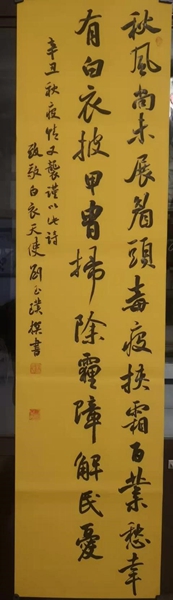 秋風尚未展眉頭毒疫挾霜百業愁幸
有白衣披甲冑掃除霾障解民憂
辛丑秋疫情又襲謹以此詩
致敬白衣天使劉玉璞撰書